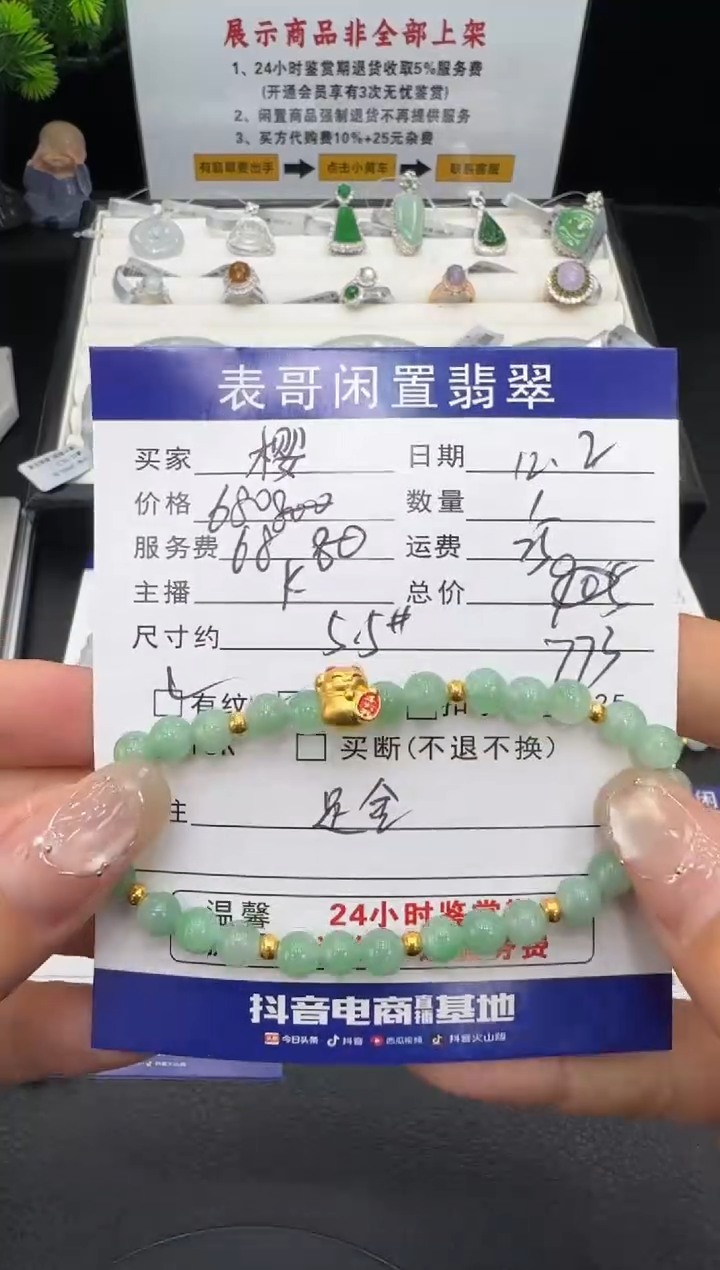 展示商品非全部上架
1、24小时鉴赏期退货收取5%服务费
(开通会员享有3次无忧鉴赏)
2、闲置商品强制退货不再提供服务
3、买方代购费10%+25元杂费
有翡翠要出手 点击小黄车 联系客服
表哥闲置翡翠
买家 樱 日期 12.2
价格 680 800 数量 1
服务费 68 80 运费 25
主播 K 总价 905
尺寸约 5.5# 773
有纹
买断(不退不换)
主 足金
温馨 24小时鉴赏
务费
抖音电商直播基地
今日头条 抖音 西瓜视频 抖音火山版